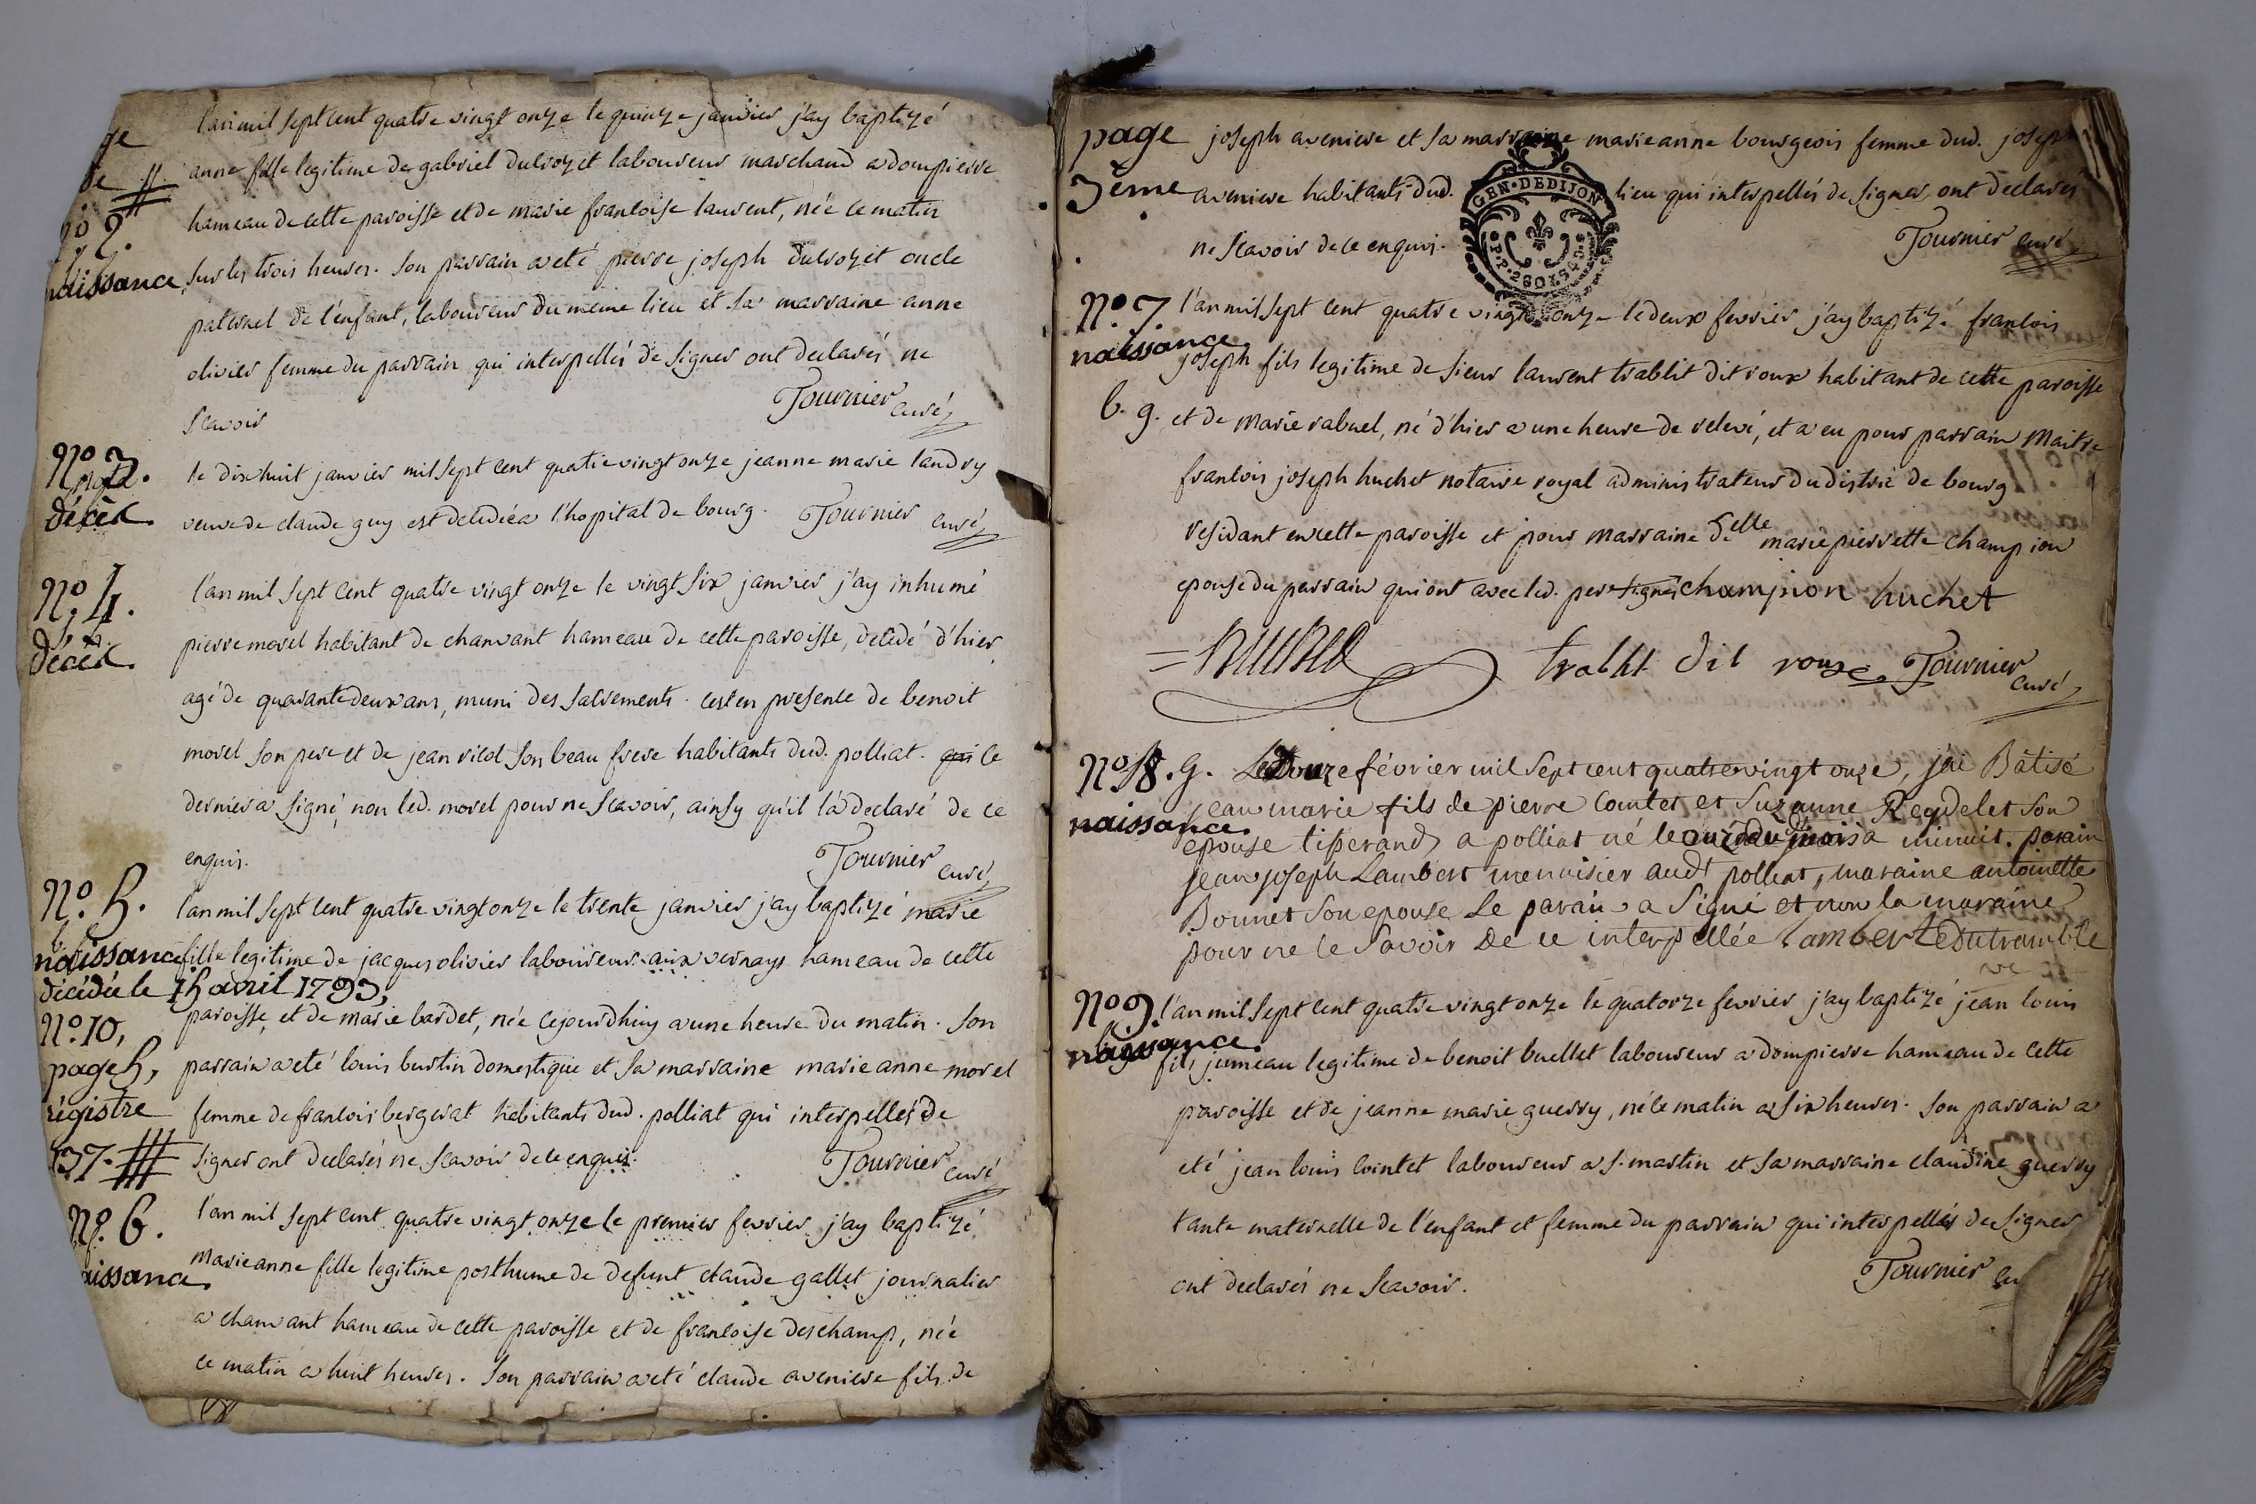 ge
2e //
n° 2.
naissance
l'an mil sept cent quatre vingt onze le quinze janvier j'ay baptizé
anne fille legitime de gabriel ducroyet laboureur marchand a dompierre
hameau de cette paroisse et de marie francoise laurent, née ce matin
sur les trois heures. son parrain a eté pierre joseph ducroyet oncle
paternel de l'enfant, laboureur du meme lieu et sa marraine anne
olivier femme du parrain qui interpellés de signer ont declarés ne
scavoir
Tournier curé
N° 3.
décès.
le dixhuit janvier mil sept cent quatre vingt onze jeanne marie landry
veuve de claude guy est decedée a l'hopital de bourg. Tournier curé
N° 4.
décès.
l'an mil sept cent quatre vingt onze le vingt six janvier j'ay inhumé
pierre morel habitant de chanvant hameau de cette paroisse, decedé d'hier
agé de quarante deux ans, muni des sacrements. cest en presence de benoit
morel son pere et de jean vicol son beau frere habitants dud. polliat. qui ce
dernier a signé, non led. morel pour ne scavoir, ainsy qu'il l'a declaré de ce
enquis.
Tournier curé
N° 5.
naissance
décédée le 15 avril 1793,
N° 10,
page 5,
régistre
37.
l'an mil sept cent quatre vingt onze le trente janvier j'ay baptizé marie
fille legitime de jacques olivier laboureur aux vernays hameau de cette
paroisse, et de marie bardet, née cejourdhuy a une heure du matin. son
parrain a eté louis burtin domestique et sa marraine marie anne morel
femme de francois bergerat habitants dud. polliat qui interpellés de
signer ont declarés ne scavoir de ce enquis.
Tournier curé
N° 6.
naissance.
l'an mil sept cent quatre vingt onze le premier fevrier j'ay baptizé
marie anne fille legitime posthume de defunt claude gallet journalier
a chanvant hameau de cette paroisse et de francoise deschamp, née
ce matin a huit heures. son parrain a eté claude aveniere fils de
page
3ème
joseph aveniere et sa marraine marie anne bourgeois femme dud. joseph
aveniere habitants dud. lieu qui interpellés de signer, ont declarés
ne scavoir de ce enquis.
Tournier curé
GEN. DE DIJON
N° 7.
naissance.
b. g.
l'an mil sept cent quatre vingt onze le deux fevrier j'ay baptizé francois
joseph fils legitime de sieur laurent trablit dit roux habitant de cette paroisse
et de marie rabuel, né d'hier a une heure de relevé, et a eu pour parrain maitre
francois joseph huchet notaire royal administrateur du distric de bourg
residant en cette paroisse et pour marraine delle marie pierrette champion
epouse du parrain qui ont avec led. pere signé champion huchet
trablit dit roux Tournier curé
N° 8. g.
naissance.
Le Douze février mil sept cent quatrevingt onze, j'ai Bâtisé
jean marie fils de pierre Coutet et Suzanne Requdelet son
epouse tisserand a polliat né le onze du mois a minuit. parain
jean joseph Lambert menuisier audt polliat, maraine antoinette
Bonnet son epouse Le parain a signé et non la maraine
pour ne le savoir De ce interpellée Lambert Dutramble
vc
N° 9.
naissance.
l'an mil sept cent quatre vingt onze le quatorze fevrier j'ay baptizé jean louis
fils jumeau legitime de benoit buellet laboureur a dompierre hameau de cette
paroisse et de jeanne marie guerry, né ce matin a six heures. son parrain a
eté jean louis cointet laboureur a s. martin et sa marraine claudine guerry
tante maternelle de l'enfant et femme du parrain qui interpellés de signer
ont declarés ne scavoir.
Tournier cu